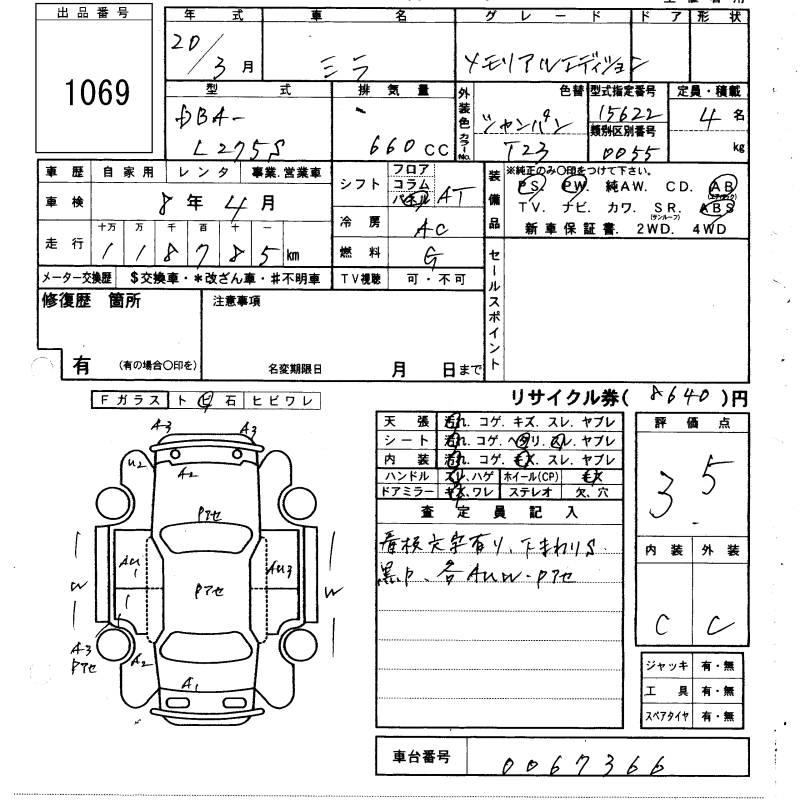 出品番号
1069
年式 車名 グレード ドア 形状
20/3月 ミラ メモリアルエディション
型式 排気量 外装色 カラーNo. 色替 型式指定番号 定員・積載
DBA- シャンパン 15622 4名
類別区別番号
L275S 660CC T23 0055 kg
車歴 自家用 レンタ 事業.営業車
車検 8年4月
走行 十万 万 千 百 十 一
118785km
メーター交換歴 $交換車・*改ざん車・#不明車
シフト フロア コラム パネル AT
冷房 AC
燃料 G
TV視聴 可・不可
装備品 ※純正のみ○印をつけて下さい。
PS. PW. 純AW. CD. AB(エアーバック)
TV. ナビ. カワ. SR.(サンルーフ) ABS
新車保証書. 2WD. 4WD
修復歴 箇所
有 (有の場合○印を)
注意事項
名変期限日 月 日まで
セールスポイント
リサイクル券( 8640 )円
Fガラス トビ石 ヒビワレ
天張 汚れ. コゲ. キズ. スレ. ヤブレ
シート 汚れ. コゲ. ヘタリ. スレ. ヤブレ
内装 汚れ. コゲ. キズ. スレ. ヤブレ
ハンドル スレ.ハゲ ホイール(CP) キズ
ドアミラー キズ.ワレ ステレオ 欠、穴
査定員記入
看板文字有り、下まわりS
各AUW・Pアセ
評価点
3.5
内装 外装
C C
ジャッキ 有・無
工具 有・無
スペアタイヤ 有・無
A3 A3
U2 A2
Pアセ
AU1 AU3
W 1 Pアセ W
A3
Pアセ A2
A1
車台番号 0067366